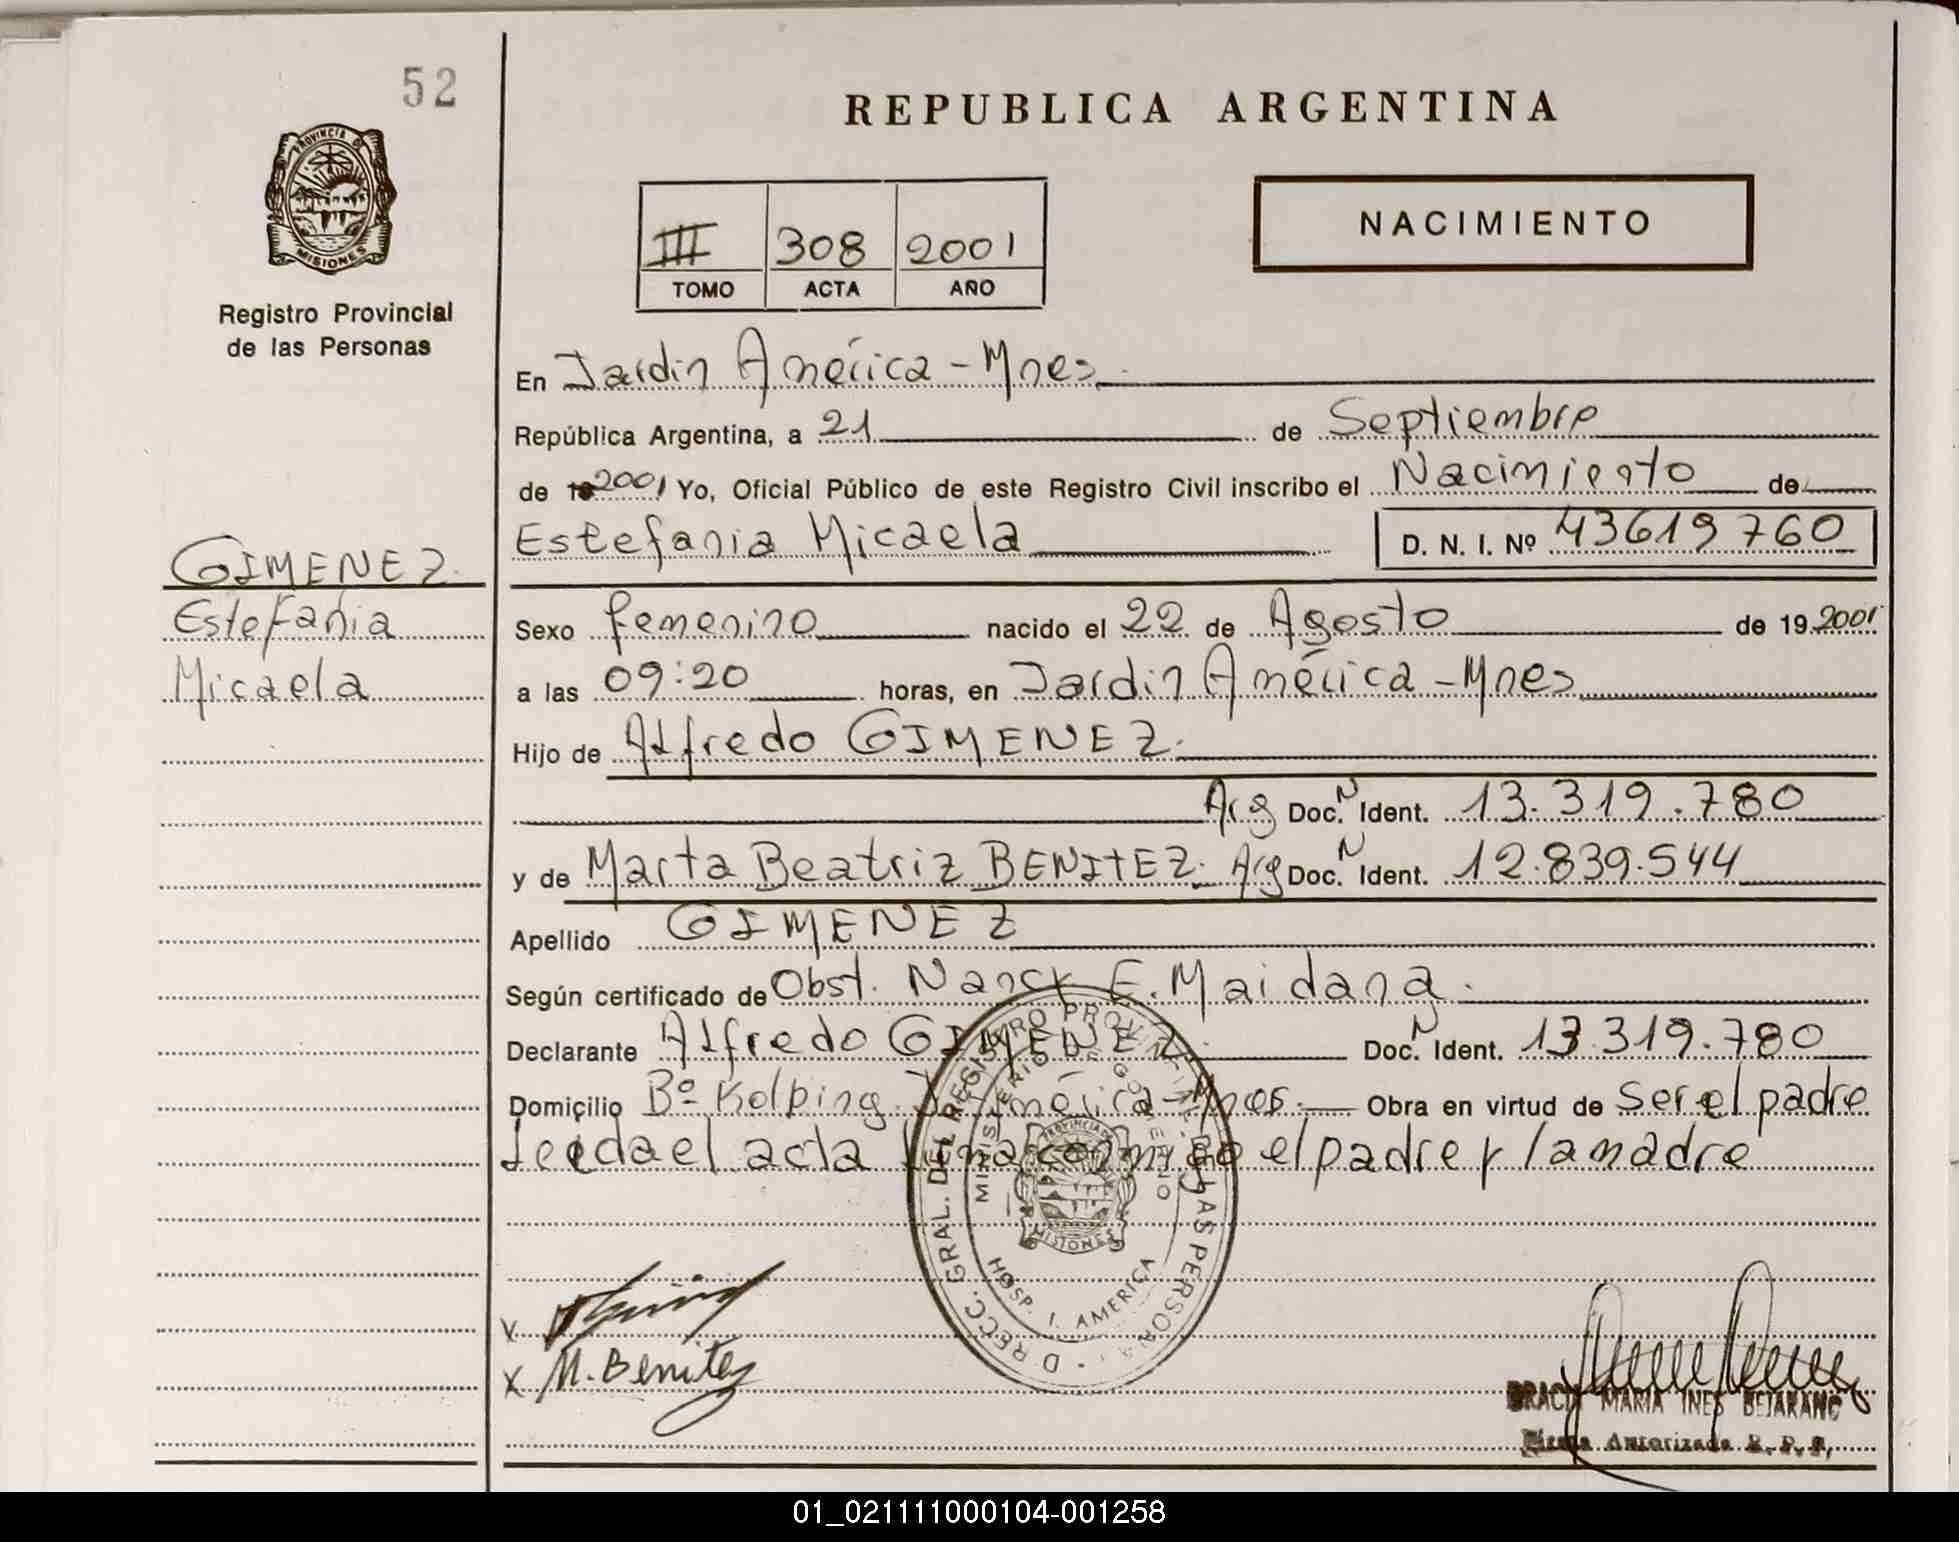 52
REPUBLICA ARGENTINA
PROVINCIA DE MISIONES
Registro Provincial
de las Personas
III 308 2001
TOMO ACTA AÑO
NACIMIENTO
En Jardin América - Mnes.
República Argentina, a 21 de Septiembre
de 19 2001 Yo, Oficial Público de este Registro Civil inscribo el Nacimiento de
Estefania Micaela D. N. I. Nº 43619760
GIMENEZ
Estefania
Micaela
Sexo femenino nacido el 22 de Agosto de 19 2001
a las 09:20 horas, en Jardin América - Mnes
Hijo de Alfredo GIMENEZ.
Arg Doc. N Ident. 13.319.780
y de Marta Beatriz BENITEZ. Arg Doc. N Ident. 12.839.544
Apellido GIMENEZ
Según certificado de Obst. Nancy E. Maidana.
Declarante Alfredo GIMENEZ Doc. N Ident. 13.319.780
Domicilio Bº Kolping J. América - Mnes. Obra en virtud de Ser el padre
Leida el acta firma conmigo el padre y la madre
DIRECC. GRAL. DEL REGISTRO PROVINCIAL DE LAS PERSONAS
MINISTERIO DE GOBIERNO
PROVINCIA DE MISIONES
HOSP. J. AMERICA
X
X M. Benitez
MARIA INES BEJARANO
Autorizada R. P. P.
01_021111000104-001258